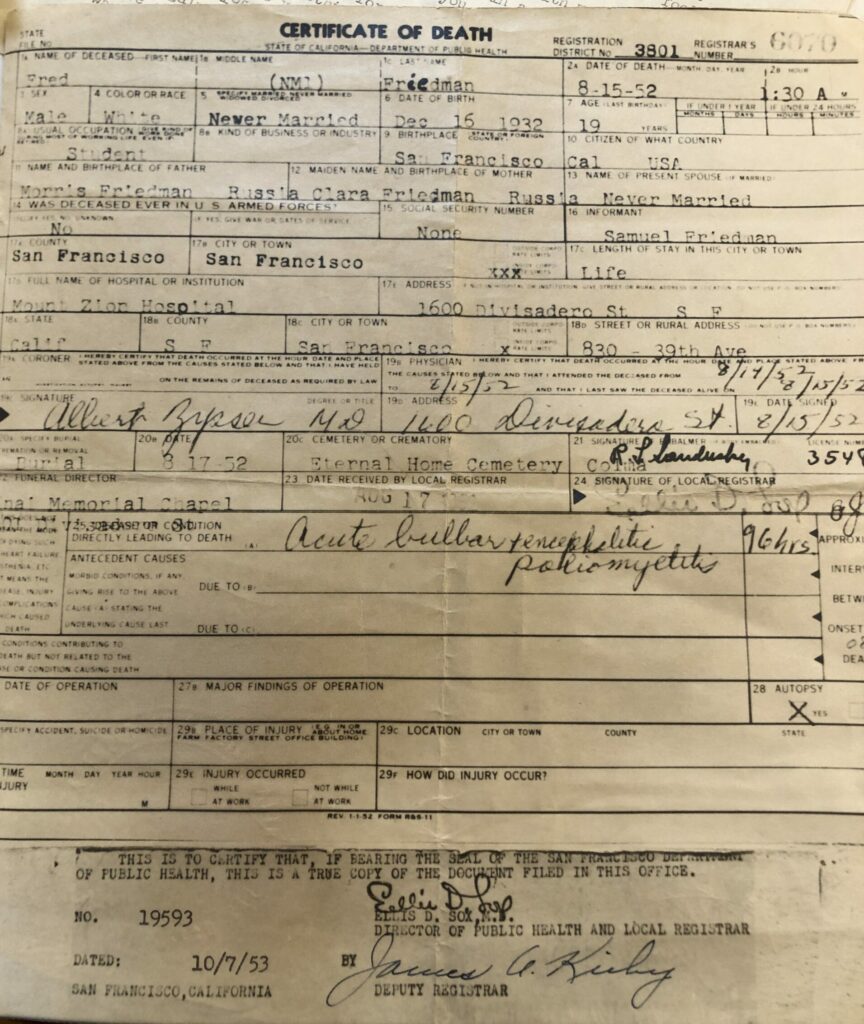 CERTIFICATE OF DEATH
STATE OF CALIFORNIA—DEPARTMENT OF PUBLIC HEALTH
STATE
FILE NO
REGISTRATION
DISTRICT NO 3801
REGISTRAR'S
NUMBER 6070
1A NAME OF DECEASED—FIRST NAME
Fred
1B MIDDLE NAME
(NMI)
1C LAST NAME
Friedman
2A DATE OF DEATH—MONTH, DAY, YEAR
8-15-52
2B HOUR
1:30 A M
3 SEX
Male
4 COLOR OR RACE
White
5 SPECIFY MARRIED, NEVER MARRIED
WIDOWED DIVORCED
Never Married
6 DATE OF BIRTH
Dec 16 1932
7 AGE (LAST BIRTHDAY)
19 YEARS
IF UNDER 1 YEAR
MONTHS DAYS
IF UNDER 24 HOURS
HOURS MINUTES
8A USUAL OCCUPATION
Student
8B KIND OF BUSINESS OR INDUSTRY
9 BIRTHPLACE (STATE OR FOREIGN COUNTRY)
San Francisco Cal
10 CITIZEN OF WHAT COUNTRY
USA
11 NAME AND BIRTHPLACE OF FATHER
Morris Friedman Russia
12 MAIDEN NAME AND BIRTHPLACE OF MOTHER
Clara Friedman Russia
13 NAME OF PRESENT SPOUSE (IF MARRIED)
Never Married
14 WAS DECEASED EVER IN U S ARMED FORCES?
No
IF YES, GIVE WAR OR DATES OF SERVICE
15 SOCIAL SECURITY NUMBER
None
16 INFORMANT
Samuel Friedman
17A COUNTY
San Francisco
17B CITY OR TOWN
San Francisco
xxx
17C LENGTH OF STAY IN THIS CITY OR TOWN
Life
FULL NAME OF HOSPITAL OR INSTITUTION
Mount Zion Hospital
17E ADDRESS
1600 Divisadero St S F
18A STATE
Calif
18B COUNTY
S F
18C CITY OR TOWN
San Francisco
x
18D STREET OR RURAL ADDRESS
830 - 39th Ave
19A CORONER I HEREBY CERTIFY THAT DEATH OCCURRED AT THE HOUR DATE AND PLACE
STATED ABOVE FROM THE CAUSES STATED BELOW AND THAT I HAVE HELD
AN
ON THE REMAINS OF DECEASED AS REQUIRED BY LAW
19B PHYSICIAN I HEREBY CERTIFY THAT DEATH OCCURRED AT THE HOUR DATE AND PLACE STATED ABOVE FROM
THE CAUSES STATED BELOW AND THAT I ATTENDED THE DECEASED FROM 8/14/52
TO 8/15/52 AND THAT I LAST SAW THE DECEASED ALIVE ON 8/15/52
SIGNATURE
Albert
DEGREE OR TITLE
MD
19D ADDRESS
1600 Divisadero St.
DATE SIGNED
8/15/52
SPECIFY BURIAL
CREMATION OR REMOVAL
Burial
20B DATE
8-17-52
20C CEMETERY OR CREMATORY
Eternal Home Cemetery Colma
21 SIGNATURE OF EMBALMER
LICENSE NUMBER
3548
22 FUNERAL DIRECTOR
Memorial Chapel
Divisadero St
23 DATE RECEIVED BY LOCAL REGISTRAR
AUG 17
24 SIGNATURE OF LOCAL REGISTRAR
25 DISEASE OR CONDITION
DIRECTLY LEADING TO DEATH (A)
Acute bulbar + encephalitic
poliomyelitis
96 hrs.
ANTECEDENT CAUSES
MORBID CONDITIONS, IF ANY,
GIVING RISE TO THE ABOVE
CAUSE (A) STATING THE
UNDERLYING CAUSE LAST
DUE TO (B)
DUE TO (C)
HEART FAILURE
DEATH
CONDITIONS CONTRIBUTING TO
DEATH BUT NOT RELATED TO THE
OR CONDITION CAUSING DEATH
DATE OF OPERATION
27B MAJOR FINDINGS OF OPERATION
28 AUTOPSY
X YES
SPECIFY ACCIDENT, SUICIDE OR HOMICIDE
29B PLACE OF INJURY (E.G. IN OR ABOUT HOME
FARM FACTORY STREET OFFICE BUILDING)
29C LOCATION CITY OR TOWN COUNTY STATE
TIME MONTH DAY YEAR HOUR
M
29E INJURY OCCURRED
WHILE
AT WORK
NOT WHILE
AT WORK
29F HOW DID INJURY OCCUR?
REV. 1-1-52 FORM R&S-11
THIS IS TO CERTIFY THAT, IF BEARING THE SEAL OF THE SAN FRANCISCO DEPARTMENT
OF PUBLIC HEALTH, THIS IS A TRUE COPY OF THE DOCUMENT FILED IN THIS OFFICE.
NO. 19593
ELLIS D. SOX, M.D.
DIRECTOR OF PUBLIC HEALTH AND LOCAL REGISTRAR
DATED: 10/7/53
BY James A. Kirby
SAN FRANCISCO, CALIFORNIA
DEPUTY REGISTRAR